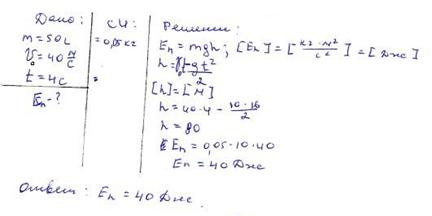 Дано:
m = 50г
V₀ = 40 м/с
t = 4с
Eп - ?
СИ:
= 0,05 кг
=
Решение:
Eп = mgh; [Eп] = [кг · м²/с²] = [Дж]
h = V₀t - gt²/2
[h] = [м]
h = 40·4 - 10·16/2
h = 80
Eп = 0,05·10·40
Eп = 40 Дж
Ответ: Eп = 40 Дж.